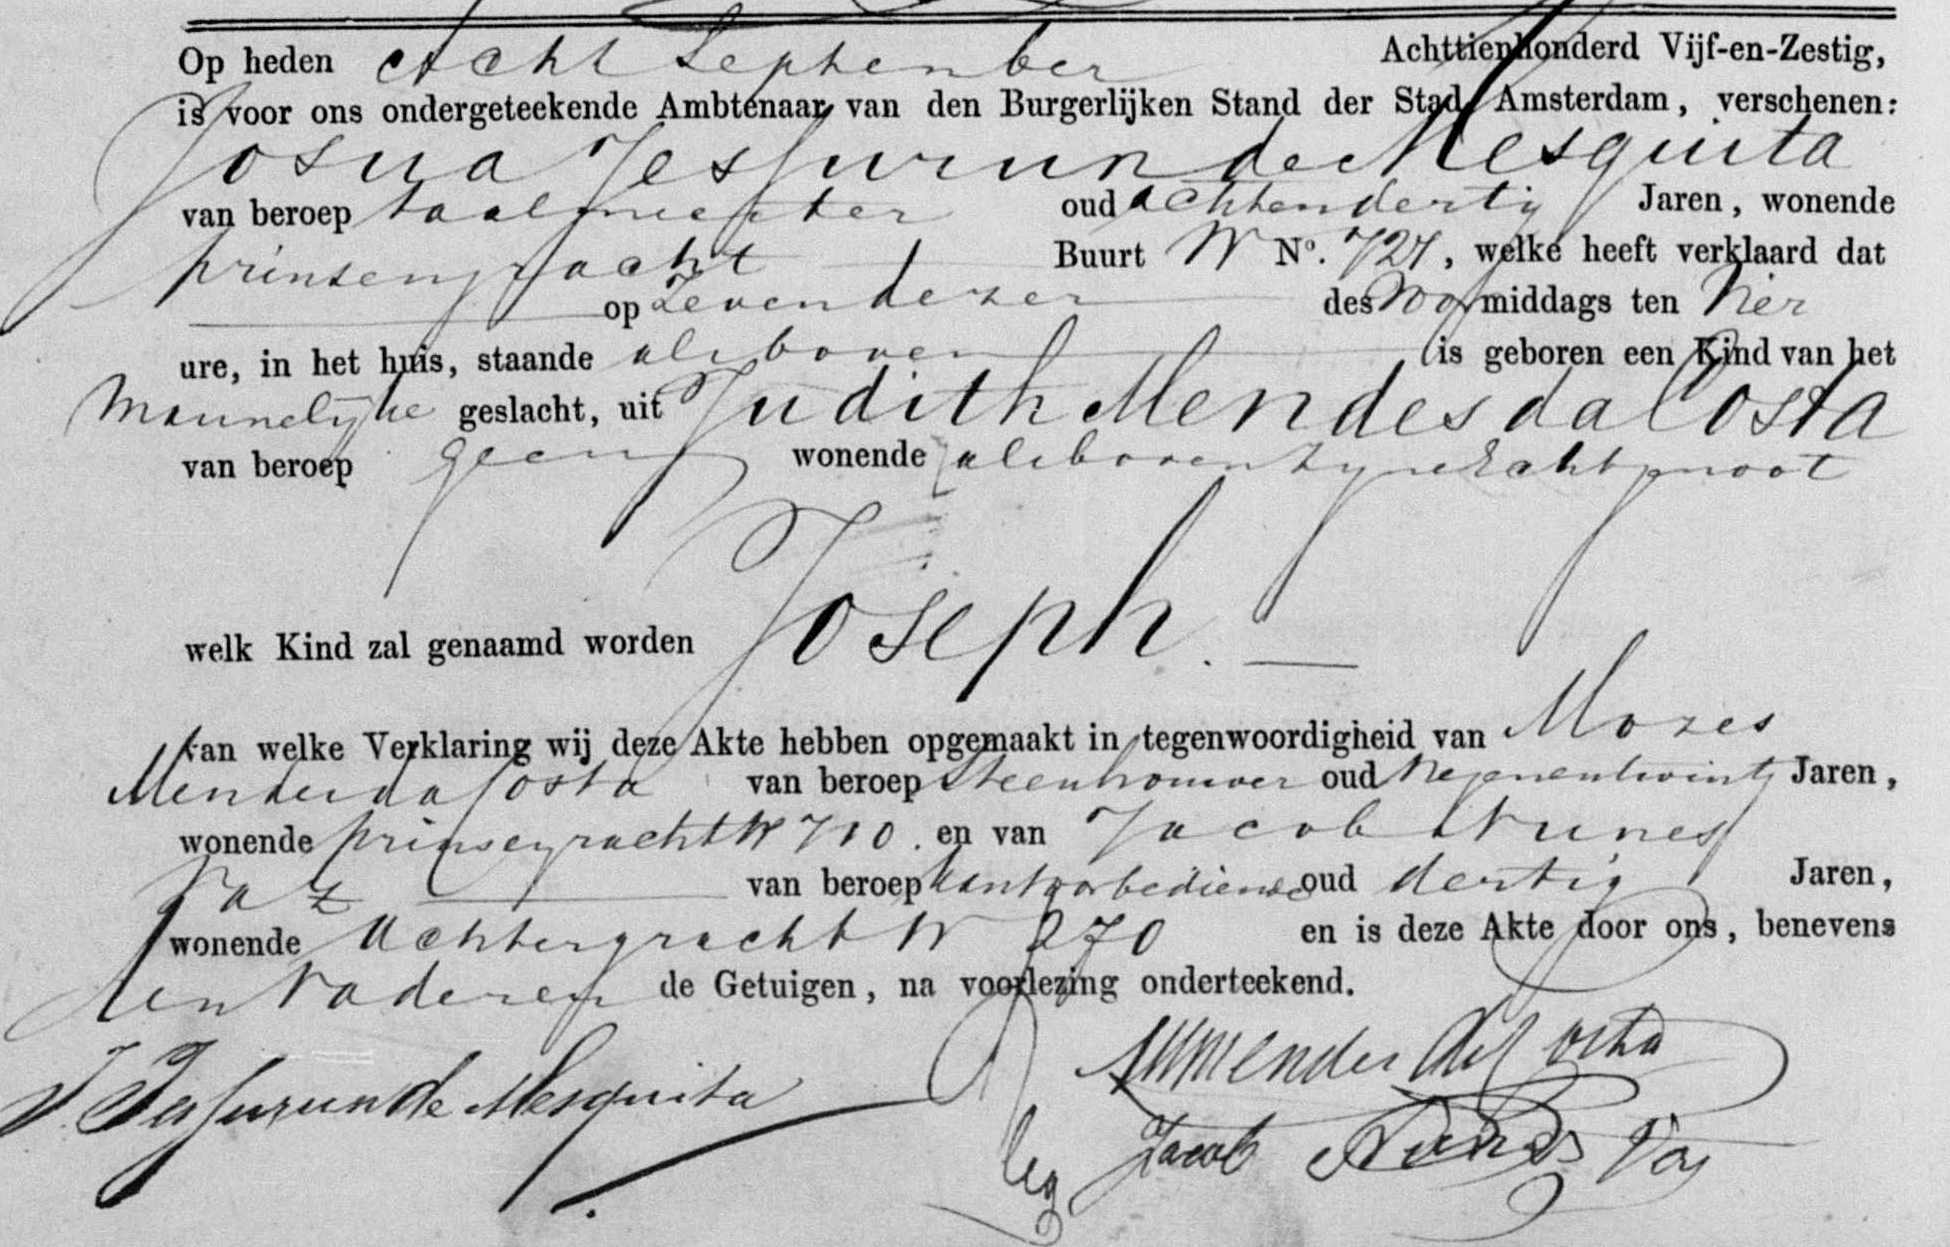 Op heden Acht September Achttienhonderd Vijf-en-Zestig,
is voor ons ondergeteekende Ambtenaar van den Burgerlijken Stand der Stad Amsterdam, verschenen:
Josua Jessurun de Mesquita
van beroep taalmeester oud achtendertig Jaren, wonende
prinsengracht Buurt W No. 727, welke heeft verklaard dat
op Zeven dezer des Voormiddags ten Vier
ure, in het huis, staande als boven is geboren een Kind van het
Mannelijke geslacht, uit Judith Mendes da Costa
van beroep geen wonende als boven zyne Echtgenoot
welk Kind zal genaamd worden Joseph.
van welke Verklaring wij deze Akte hebben opgemaakt in tegenwoordigheid van Mozes
Mendes da Costa van beroep Steenhouwer oud Negenentwintig Jaren,
wonende prinsengracht W 710. en van Jacob Nunes
Vaz van beroep kantoorbediende oud dertig Jaren,
wonende Achtergracht W 270 en is deze Akte door ons, benevens
den Vader en de Getuigen, na voorlezing onderteekend.
J. Jessurun de Mesquita
M Mendes da Costa
Jacob Nunes Vaz